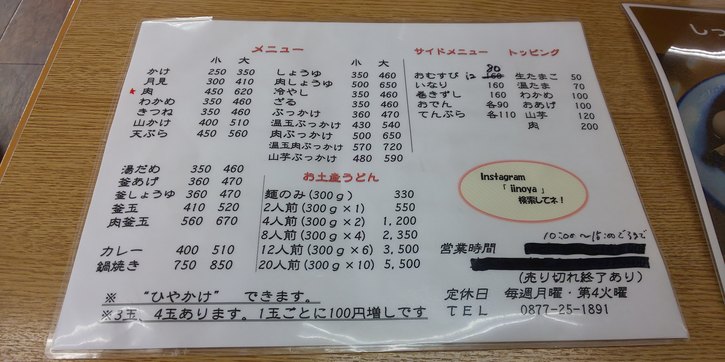 メニュー
小 大
かけ 250 350
月見 300 410
★肉 450 620
わかめ 350 460
きつね 350 460
山かけ 400 510
天ぷら 450 560
湯だめ 350 460
釜あげ 360 470
釜しょうゆ 360 470
釜玉 410 520
肉釜玉 560 670
カレー 400 510
鍋焼き 750 850
小 大
しょうゆ 350 460
肉しょうゆ 500 650
冷やし 350 460
ざる 350 460
ぶっかけ 360 470
温玉ぶっかけ 430 540
肉ぶっかけ 500 650
温玉肉ぶっかけ 570 720
山芋ぶっかけ 480 590
お土産うどん
麺のみ(300g) 330
2人前(300g×1) 550
4人前(300g×2) 1,200
8人前(300g×4) 2,350
12人前(300g×6) 3,500
20人前(300g×10) 5,500
サイドメニュー
80
おむすび 160
いなり 160
巻きずし 160
おでん 各90
てんぷら 各110
トッピング
生たまこ 50
温たま 70
わかめ 100
おあげ 100
山芋 120
肉 200
Instagram
「 iinoya 」
検索してネ!
営業時間 10:00〜15:00ごろまで
(売り切れ終了あり)
定休日 毎週月曜・第4火曜
TEL 0877-25-1891
※ “ひやかけ” できます。
※3玉、4玉あります。1玉ごとに100円増しです